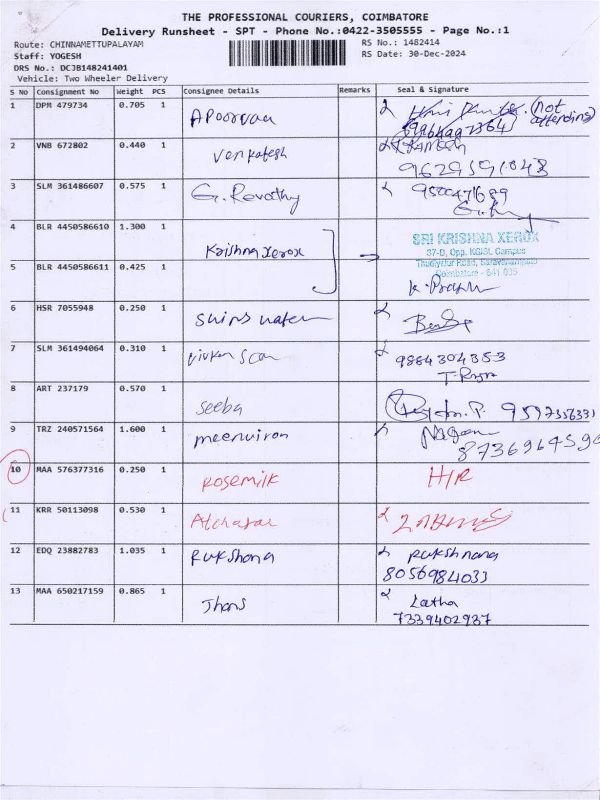 THE PROFESSIONAL COURIERS, COIMBATORE
Delivery Runsheet - SPT - Phone No.:0422-3505555 - Page No.:1
Route: CHINNAMETTUPALAYAM RS No.: 1482414
Staff: YOGESH RS Date: 30-Dec-2024
DRS No.: DCJB148241401
Vehicle: Two Wheeler Delivery
S No Consignment No Weight PCS Consignee Details Remarks Seal & Signature
1 DPM 479734 0.705 1 APoorvaa (not attending)
2 VNB 672802 0.440 1 Venkatesh RAMESH
9629591048
3 SLM 361486607 0.575 1 G. Revathy
4 BLR 4450586610 1.300 1 Krishna Xerox SRI KRISHNA XEROX
37-D, Opp. KGISL Campus
Thudiyalur Road, Saravanampatti
Coimbatore - 641 035
5 BLR 4450586611 0.425 1
6 HSR 7055948 0.250 1
7 SLM 361494064 0.310 1 9884304353
8 ART 237179 0.570 1 Seeba
9 TRZ 240571564 1.600 1 meenviron
10 MAA 576377316 0.250 1 Rosemilk H/R
11 KRR 50113098 0.530 1
12 EDQ 23882783 1.035 1 Rukshana Rukshnana
8056984033
13 MAA 650217159 0.865 1 Jhans Latha
7339402937